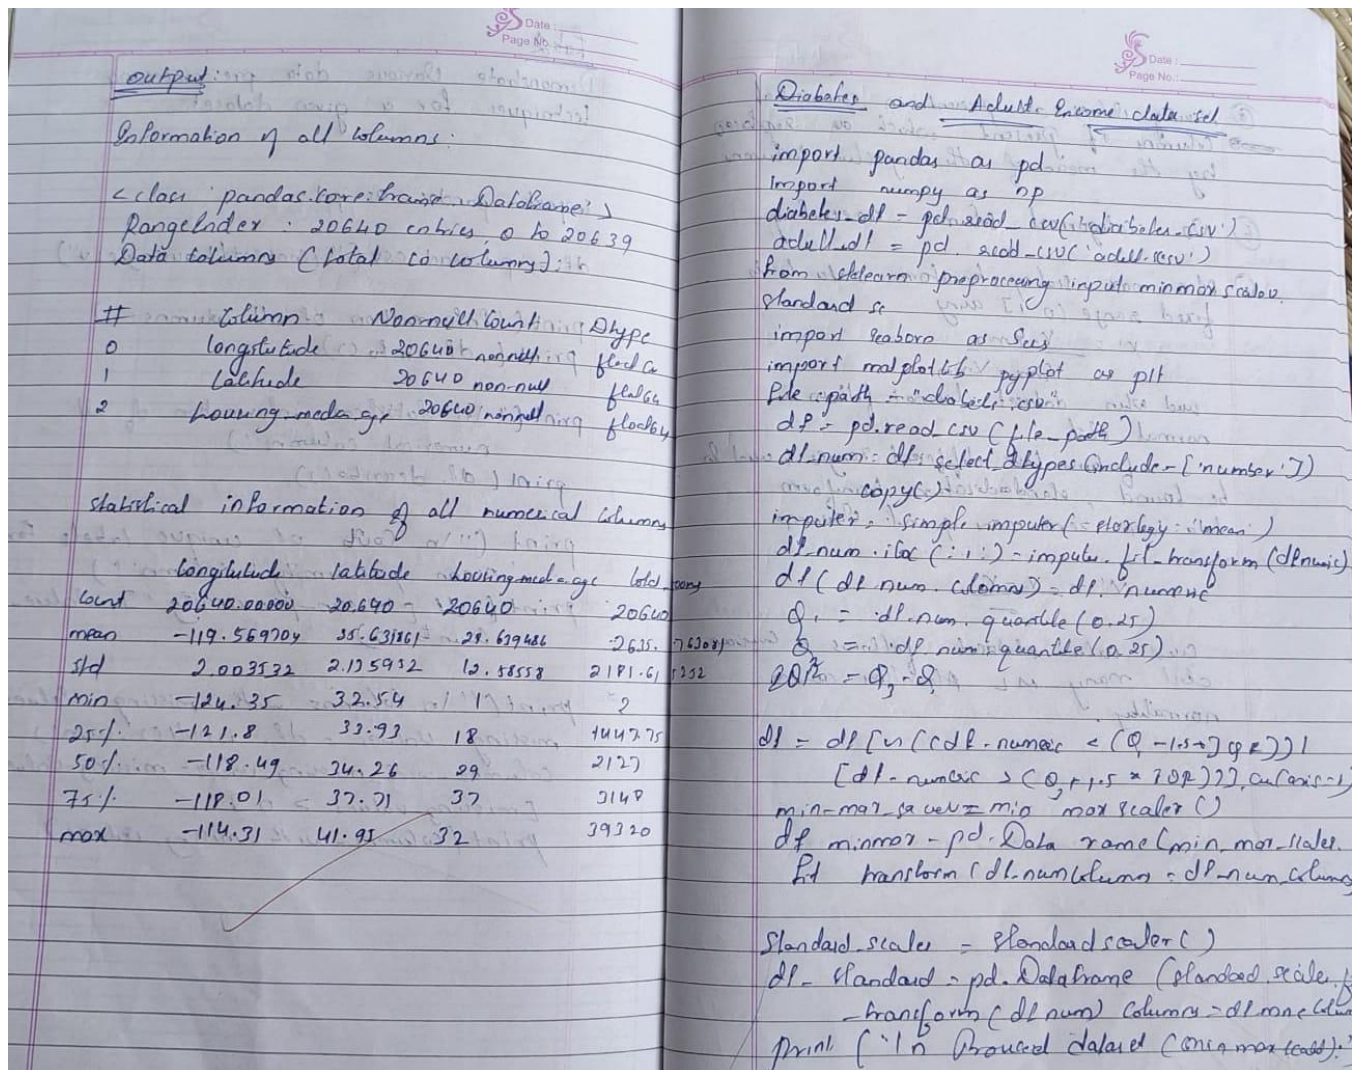 Date :
Page No.
output:
Information of all columns:
<class pandas.core.frame.Dataframe'>
RangeInder : 20640 entries, 0 to 20639
Data columns (total 10 columns):
# Column Non-null Count Dtype
0 longitutude 20640 non null float64
1 latitude 20640 non-null float64
2 housing-media age 20640 non null float64
statistical information of all numerical columns
longitutude latitude housing media age total rooms
count 20640.00000 20.640 - 20640 20640
mean -119.569704 35.631861 28.639486 2635.763081
std 2.003532 2.135932 12.58558 2181.615252
min -124.35 32.54 1 2
25% -121.8 33.93 18 1447.75
50% -118.49 34.26 29 2127
75% -118.01 37.71 37 3148
max -114.31 41.95 32 39320
Date :
Page No.:
Diabetes and Adult Income data set
import pandas as pd
Import numpy as np
diabetes_df = pd.read_csv('diabetes.csv')
adult_df = pd.read_csv('adult.csv')
from sklearn preprocessing input minmax scaler,
standard sc
import seaborn as Sns
import matplotlib pyplot as plt
file path = "diabetes.csv"
df = pd.read_csv (file_path)
df_num = df. select_dtypes (include = ['number'])
copy()
imputer = simple imputer( = stortegy = 'mean')
df_num . iloc (: , :) = imputer. fit_transform (df numic)
df (df num. columns) = df. numeric
Q1 = df. num. quantile (0.25)
Q = df num. quantile (0.25)
IQR = Q3 - Q1
df = df [~ ((df - numeric < (Q1 - 1.5 * IQR)) |
(df - numeric > (Q3 + 1.5 * IQR))]. any(axis=1)
min-max_scaler = min max scaler ()
df minmax = pd. Data rame (min_max_scaler.
fit transform (df_num columns = df_num_columns
Standard_scaler = standard scaler ()
df_ standard = pd. Dataframe (standard scaler. f
_transform (df num) columns = df
print ( "\n Proucced dataset (min max scaled):"